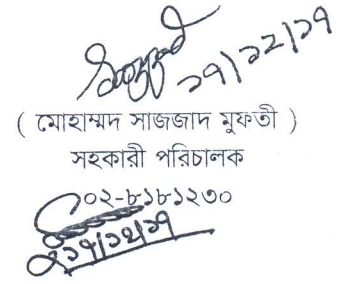 ১৭/১২/১৭
( মোহাম্মদ সাজজাদ মুফতী )
সহকারী পরিচালক
০২-৮১৮১২৩০